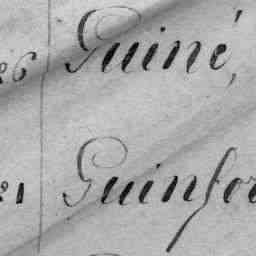 26 Guiné,
21 Guinfor